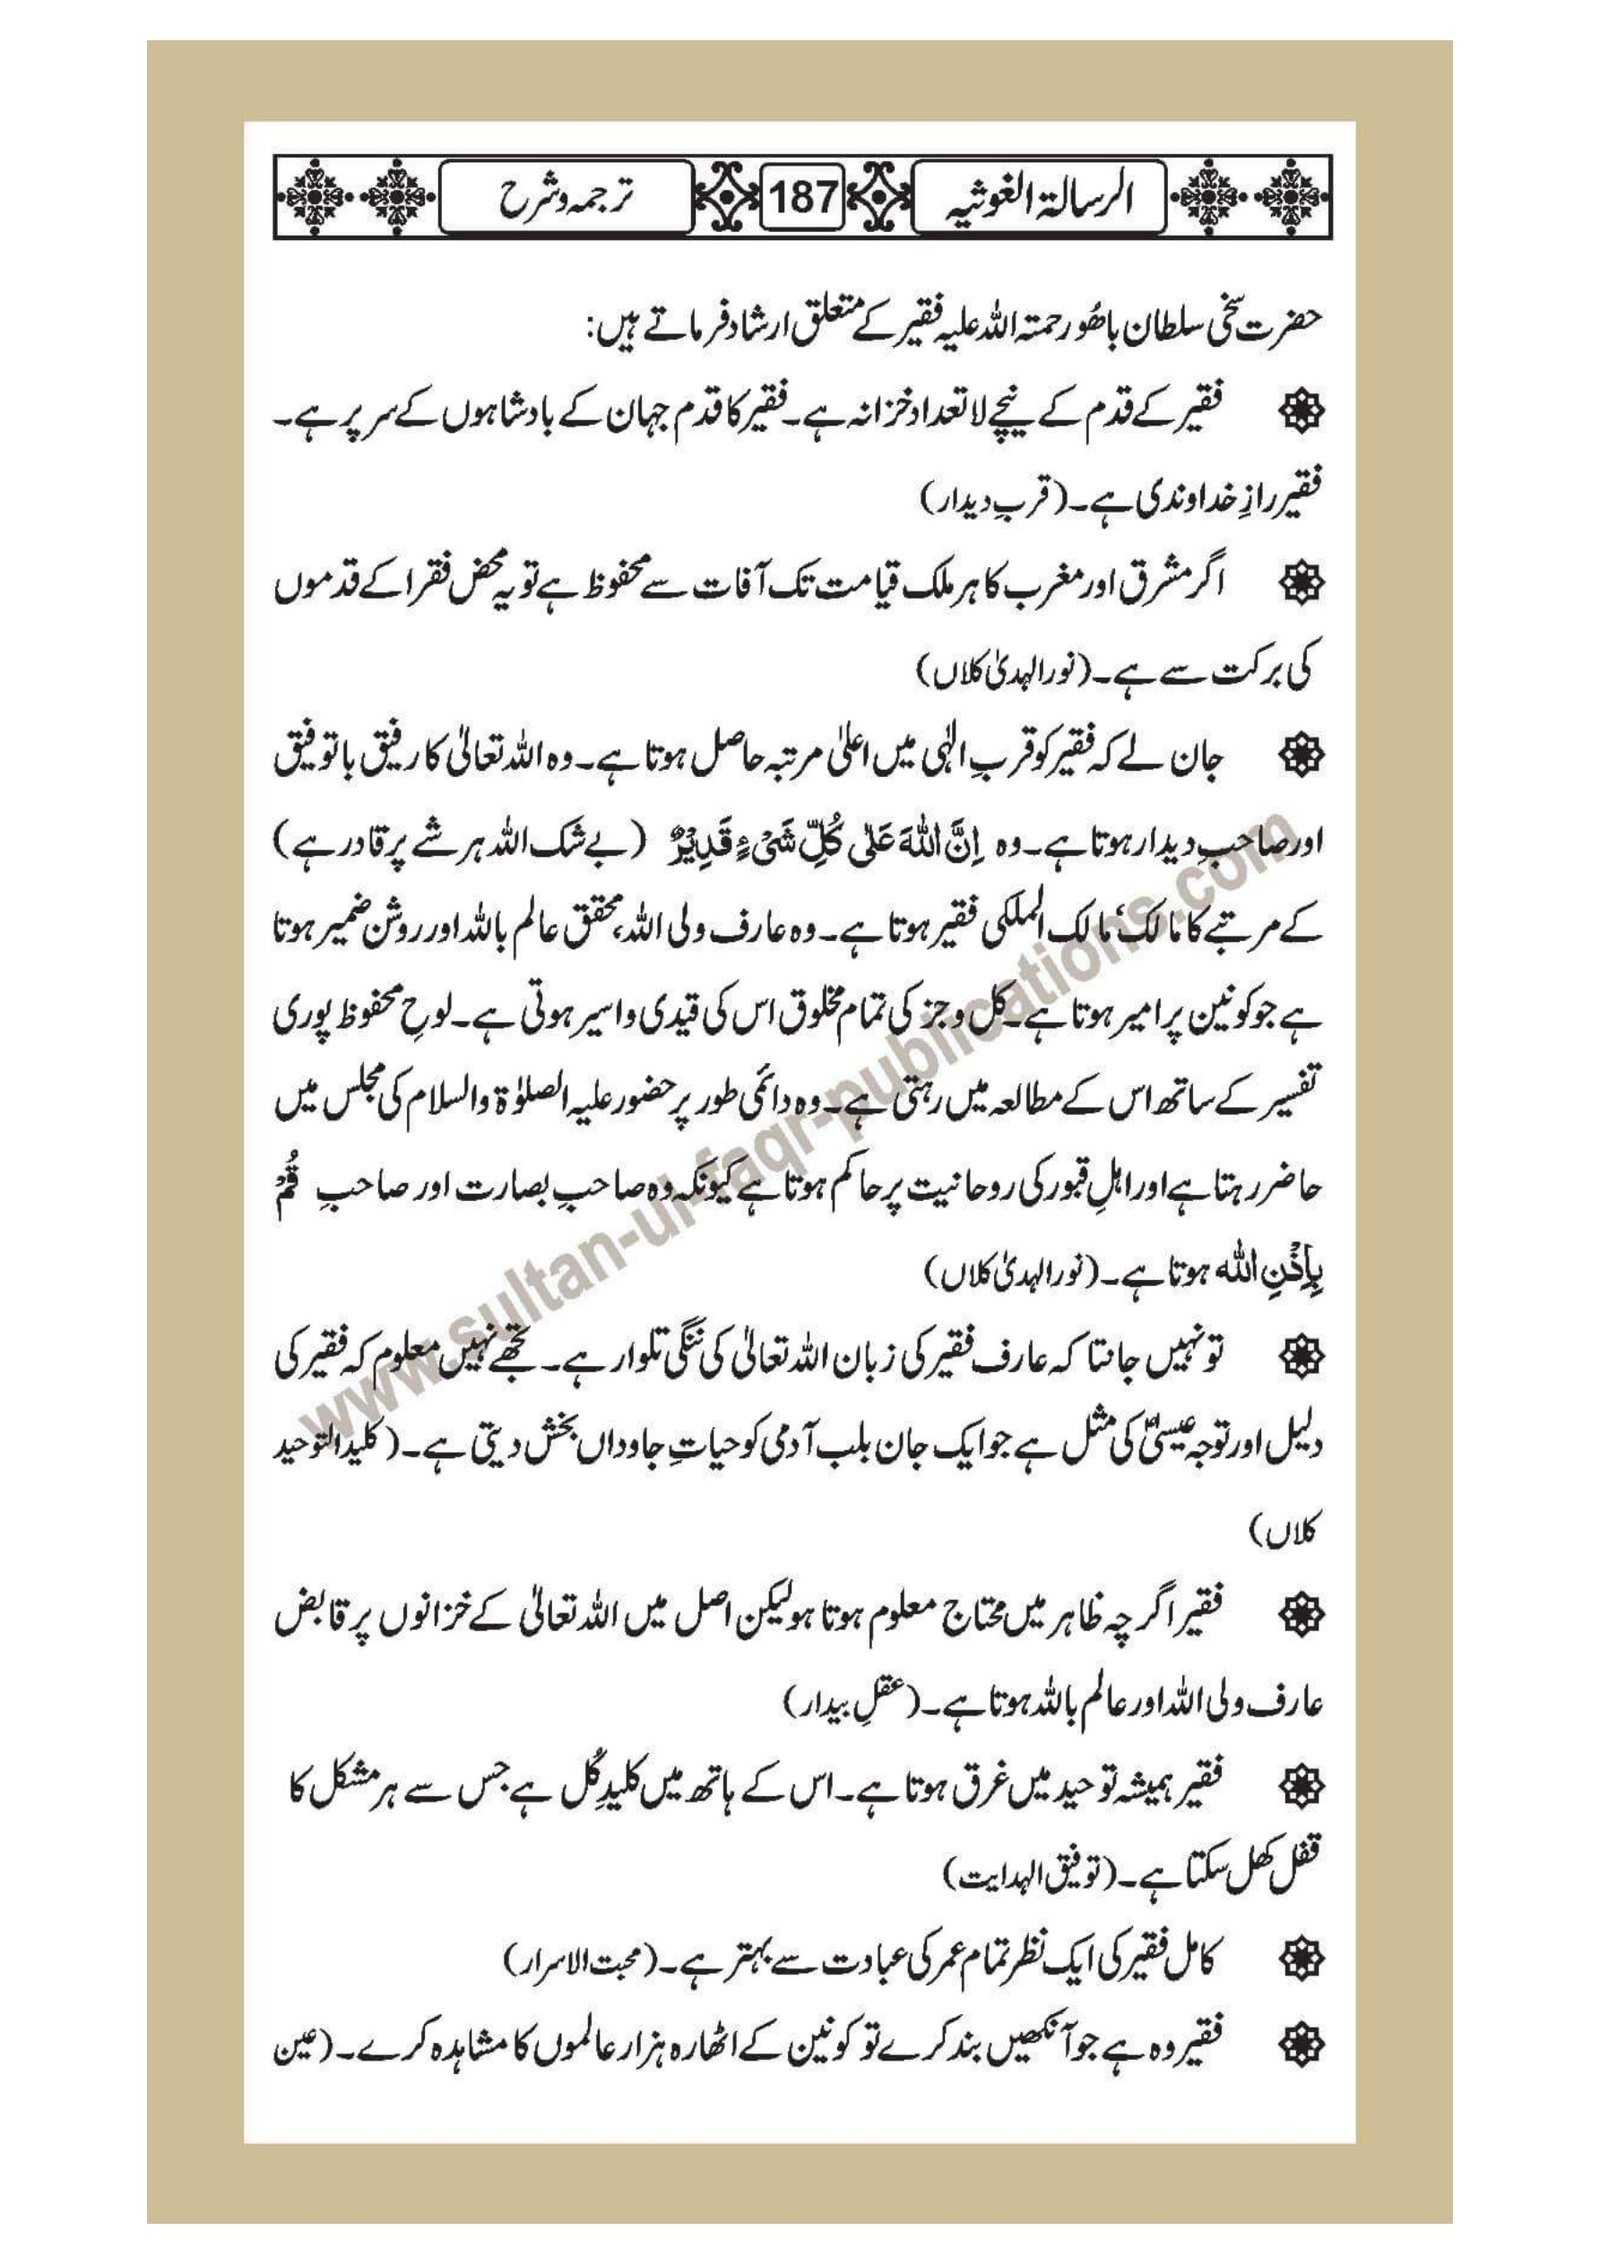 الرسالۃ الغوثیہ 187 ترجمہ و شرح
حضرت سخی سلطان باھُو رحمتہ اللہ علیہ فقیر کے متعلق ارشاد فرماتے ہیں:
فقیر کے قدم کے نیچے لا تعداد خزانہ ہے۔ فقیر کا قدم جہان کے بادشاہوں کے سر پر ہے۔
فقیر رازِ خداوندی ہے۔ (قربِ دیدار)
اگر مشرق اور مغرب کا ہر ملک قیامت تک آفات سے محفوظ ہے تو یہ محض فقرا کے قدموں
کی برکت سے ہے۔ (نور الہدیٰ کلاں)
جان لے کہ فقیر کو قربِ الٰہی میں اعلیٰ مرتبہ حاصل ہوتا ہے۔ وہ اللہ تعالیٰ کا رفیق باتوفیق
اور صاحبِ دیدار ہوتا ہے۔ وہ اِنَّ اللّٰہَ عَلٰی کُلِّ شَیْءٍ قَدِیْرٌ (بے شک اللہ ہر شے پر قادر ہے)
کے مرتبے کا مالک‘ مالک الملکی فقیر ہوتا ہے۔ وہ عارف ولی اللہ، محقق عالم باللہ اور روشن ضمیر ہوتا
ہے جو کونین پر امیر ہوتا ہے۔ کل و جز کی تمام مخلوق اس کی قیدی و اسیر ہوتی ہے۔ لوحِ محفوظ پوری
تفسیر کے ساتھ اس کے مطالعہ میں رہتی ہے۔ وہ دائمی طور پر حضور علیہ الصلوٰۃ والسلام کی مجلس میں
حاضر رہتا ہے اور اہلِ قبور کی روحانیت پر حاکم ہوتا ہے کیونکہ وہ صاحبِ بصارت اور صاحبِ قُمْ
بِاِذْنِ اللّٰہ ہوتا ہے۔ (نور الہدیٰ کلاں)
تو نہیں جانتا کہ عارف فقیر کی زبان اللہ تعالیٰ کی ننگی تلوار ہے۔ تجھے نہیں معلوم کہ فقیر کی
دلیل اور توجہ عیسیٰؑ کی مثل ہے جو ایک جان بلب آدمی کو حیاتِ جاوداں بخش دیتی ہے۔ (کلید التوحید
کلاں)
فقیر اگرچہ ظاہر میں محتاج معلوم ہوتا ہو لیکن اصل میں اللہ تعالیٰ کے خزانوں پر قابض
عارف ولی اللہ اور عالم باللہ ہوتا ہے۔ (عقلِ بیدار)
فقیر ہمیشہ توحید میں غرق ہوتا ہے۔ اس کے ہاتھ میں کلیدِ کُل ہے جس سے ہر مشکل کا
قفل کھل سکتا ہے۔ (توفیق الہدایت)
کامل فقیر کی ایک نظر تمام عمر کی عبادت سے بہتر ہے۔ (محبت الاسرار)
فقیر وہ ہے جو آنکھیں بند کرے تو کونین کے اٹھارہ ہزار عالموں کا مشاہدہ کرے۔ (عین
www.sultan-ul-faqr-publications.com